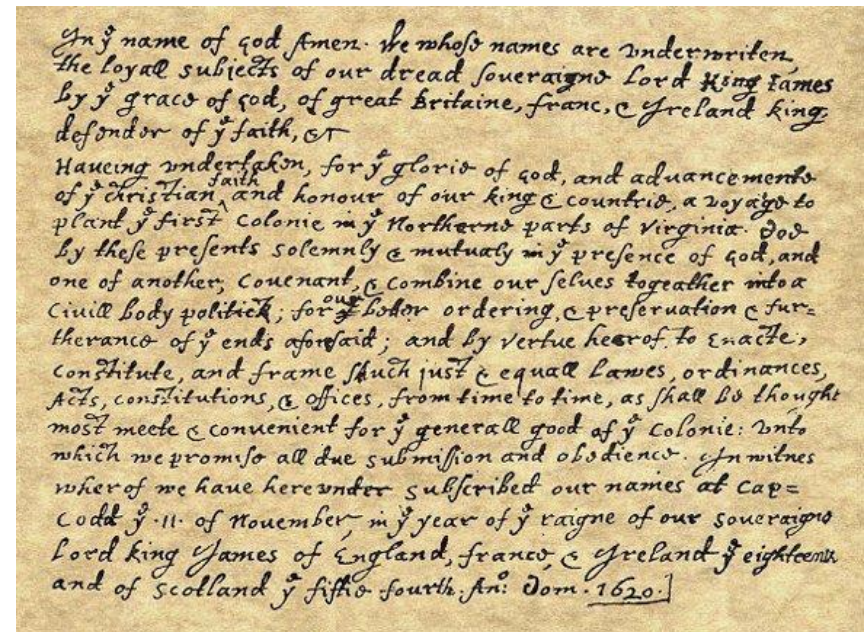 In yᵉ name of god Amen. We whose names are vnderwriten,
the loyall subjects of our dread soveraigne Lord King James
by yᵉ grace of god, of great Britaine, franc, & Ireland king,
defender of yᵉ faith, &c
Haveing vndertaken, for yᵉ glorie of god, and advancemente
of yᵉ christian faith and honour of our king & countrie, a voyage to
plant yᵉ first colonie in yᵉ Northerne parts of Virginia. Doe
by these presents solemnly & mutualy in yᵉ presence of god, and
one of another, covenant, & combine our selves togeather into a
civill body politick; for our better ordering, & preservation & fur=
therance of yᵉ ends aforesaid; and by vertue hearof, to enacte,
constitute, and frame shuch just & equall lawes, ordinances,
Acts, constitutions, & offices, from time to time, as shall be thought
most meete & convenient for yᵉ generall good of yᵉ colonie: vnto
which we promise all due submission and obedience. In witnes
wherof we have herevnder subscribed our names at Cap=
Codd yᵉ .11. of November, in yᵉ year of yᵉ raigne of our soveraigne
Lord king James of England, france, & Ireland yᵉ eighteenth
and of Scotland yᵉ fiftie fourth. Anº: Dom. 1620.]